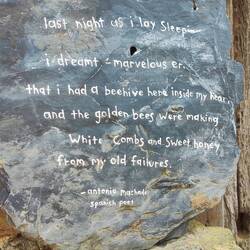 last night as i lay sleeping
i dreamt - marvelous er
that i had a beehive here inside my hear
and the golden bees were making
White Combs and Sweet honey
from my old failures.
- antonio machado
spanish poet